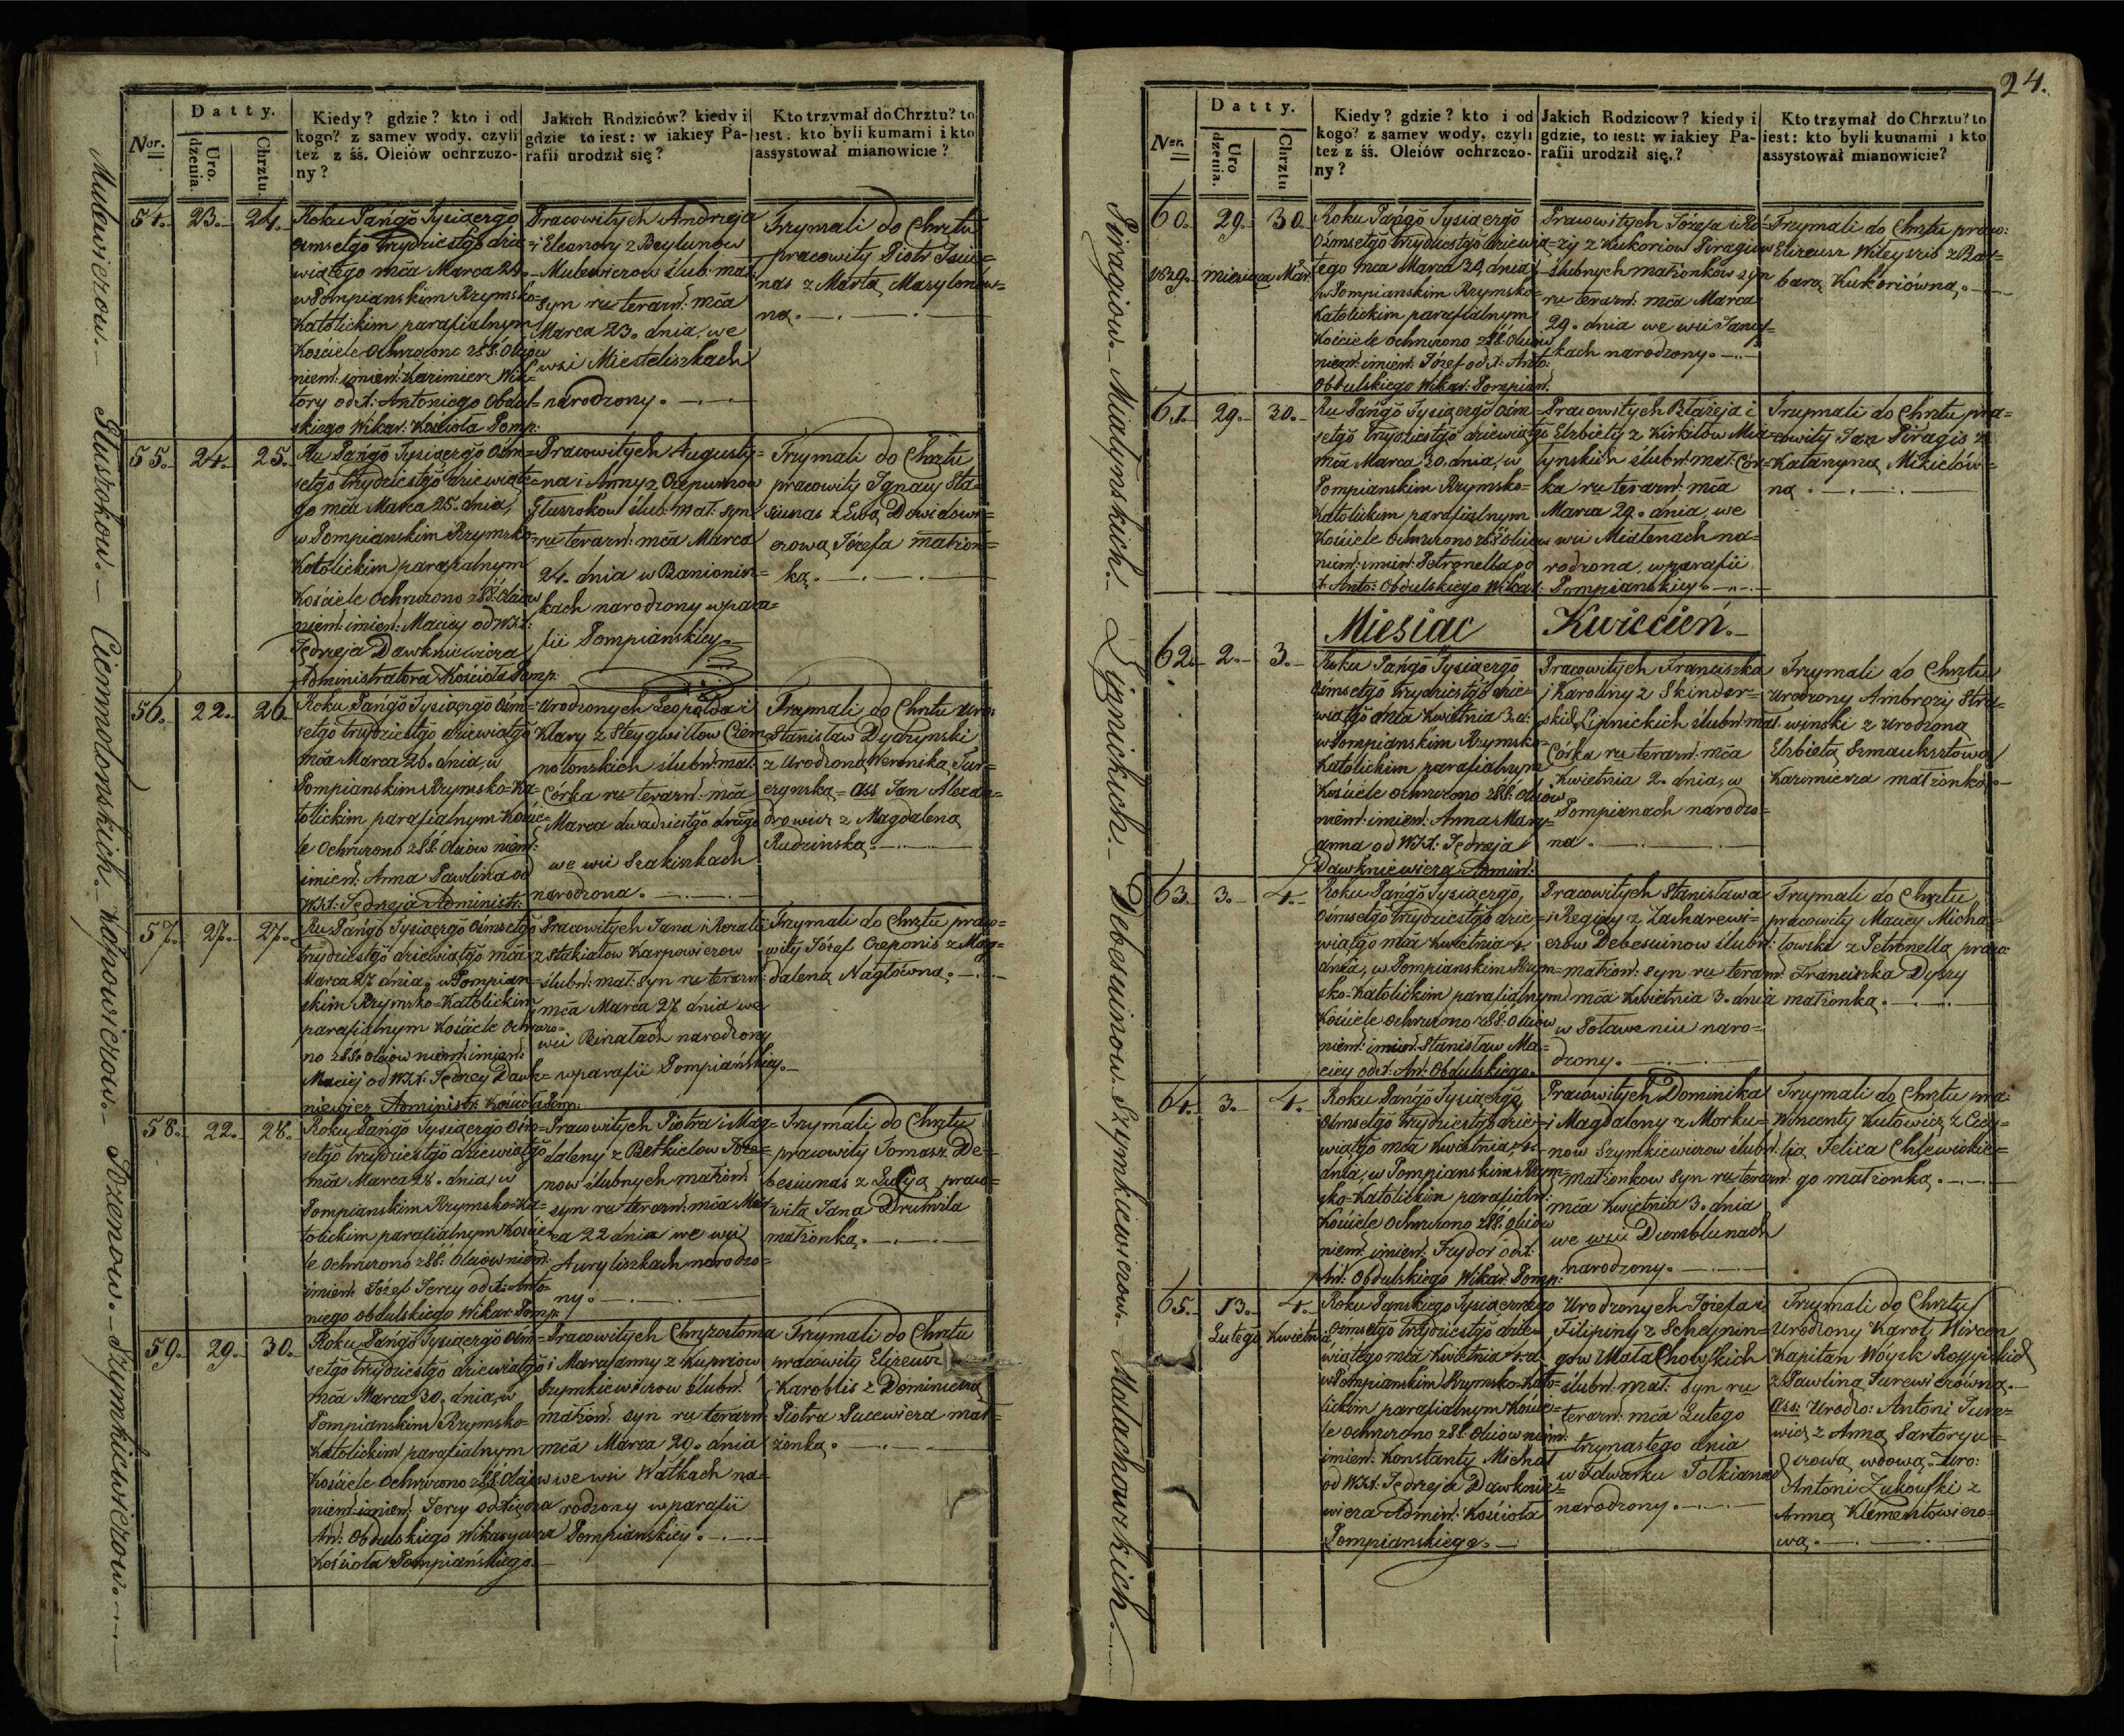 24.
Nor.
Datty.
Uro.
dzenia.
Chrztu.
Kiedy? gdzie? kto i od
kogo? z samey wody, czyli
też z śś. Oleiów ochrzczo-
ny?
Jakich Rodziców? kiedy i
gdzie to iest: w iakiey Pa-
rafii urodził się?
Kto trzymał do Chrztu? to
iest: kto byli kumami i kto
assystował mianowicie?
54. 23. 24.
Roku Pańgo Tysiącrgo
Ośmsetgo trzydziestgo dzie=
wiątego mca Marca 24.
w Pompianskim Rzymsko=
Katolickim parafialnym
Kościele Ochrzcono z SS: Oleiow
niem: imien: Kazimierz Wik=
tory od X: Antoniego Obdul=
skiego Wikar: Kościoła Pomp:
Pracowitych Andrzeja
i Eleonory z Beylunow
Mulewiczow ślub: mał:
syn ru terazn: mca
Marca 23. dnia, we
wsi Miesteliszkach
narodzony.
Trzymali do Chrztu
pracowity Piotr
nas z Martą Mazylonów=
ną.
55. 24. 25.
Ru Pańgo Tysiącrgo Ośm=
setgo trzydziestgo dziewiąte=
go mca Marca 25. dnia,
w Pompianskim Rzymsko=
Katolickim parafialnym
Kościele Ochrzcono z SS: Oleiow
niem: imien: Maciey od WJX:
Jędrzeja Dawkniewicza
Administratora Kościoła Pomp:
Pracowitych Augusty=
na i Anny z Czepunow
Głuszokow ślub: mał: syn
ru terazn: mca Marca
24. dnia w Banionisz=
kach narodzony w para=
fii Pompianskiey
Trzymali do Chrztu
pracowity Ignacy Sta=
siunas z Ewą Dowidowi=
czową Józefa małżon=
ką.
56. 22. 26
Roku Pańgo Tysiącrgo Ośm=
setgo trzydziestgo dziewiątgo
mca Marca 26. dnia, w
Pompianskim Rzymsko=Ka=
tolickim parafialnym Koście=
le Ochrzcono z SS: Oleiow niem:
imien: Anna Pawlina od
WJX: Jędrzeja Administr:
Urodzonych Leopolda i
Klary z Steygwiłłow Ciem=
nołonskich ślubn: mał:
Córka ru terazn: mca
Marca dwudziestgo drugo
we wsi Szakiszkach
narodzona.
Trzymali do Chrztu Uro:
Stanisław Dydzynski
z Urodzoną Weroniką Tur=
czynską = Ass Jan Alexan=
drowicz z Magdaleną
Rudzinską.
57. 27. 27.
Ru Pańgo Tysiącrgo Ośmsetgo
trzydziestgo dziewiątgo mca
Marca 27 dnia, w Pompian=
skim Rzymsko=Katolickim
parafialnym Kościele Ochrzco=
no z SS: Oleiow niem: imien:
Maciej od WJX: Jędrzey Dawk=
niewicz Administr: Kościoła Pomp:
Pracowitych Jana i Rozalii
z Stakiałow Karpowiczow
ślubn: mał: syn ru terazn:
mca Marca 27 dnia we
wsi Binałach narodzony
w parafii Pompiańskiey.
Trzymali do Chrztu praco=
wity Józef Czeponis z Mag=
daleną Nagłówną.
58. 22. 28.
Roku Pańgo Tysiącrgo Ośm=
setgo trzydziestgo dziewiątgo
mca Marca 28. dnia, w
Pompianskim Rzymsko=Ka=
tolickim parafialnym Koście=
le Ochrzcono z SS: Oleiow niem:
imien: Józef Jerzy od X: Anto=
niego Obdulskiego Wikar: Pomp:
Pracowitych Piotra i Mag=
daleny z Betkielow Joze=
now ślubnych małżon:
syn ru terazn: mca Mar=
ca 22 dnia we wsi
Auryliszkach narodzo=
ny.
Trzymali do Chrztu
pracowity Tomasz De=
besiunas z Łucyą praco=
witą Jana Drumzla
małżonką.
59. 29. 30.
Roku Pańgo Tysiącrgo Ośm=
setgo trzydziestgo dziewiątgo
mca Marca 30. dnia, w
Pompianskim Rzymsko=
Katolickim parafialnym
Kościele Ochrzcono z SS: Oleiow
niem: imien: Jerzy od Xiędza
An: Obdulskiego Wikaryusza
Kościoła Pompiańskiego.
Pracowitych Chryzostoma
i Maryanny z Kuprow
Szymkiewiczow ślubn:
małżon: syn ru terazn:
mca Marca 29. dnia
we wsi Watkach na=
rodzony w parafii
Pompianskiey.
Trzymali do Chrztu
pracowity Elizeusz
Karoblis z Dominiczą
Piotra Pucewicza mał=
żonką.
Mulewiczow. Głuszokow. Ciemnołonskich. Karpowiczow. Jozenow. Szymkiewiczow.
Nor.
Datty.
Uro
dzenia.
Chrztu
Kiedy? gdzie? kto i od
kogo? z samey wody, czyli
też z śś. Oleiów ochrzczo-
ny?
Jakich Rodzicow? kiedy i
gdzie, to iest: w iakiey Pa-
rafii urodził się.?
Kto trzymał do Chrztu? to
iest: kto byli kumami i kto
assystował mianowicie?
60. 29. 30.
1839. miesiąca Mar:
Roku Pańgo Tysiącrgo
Ośmsetgo trzydziestgo dziewią=
tego mca Marca 30. dnia,
w Pompianskim Rzymsko=
Katolickim parafialnym
Kościele Ochrzcono z SS: Oleiow
niem: imien: Józef od X: Anto:
Obdulskiego Wikar: Pompian:
Pracowitych Józefa i Ró=
zy z Kukoriow Piragiow
ślubnych małżonkow syn
ru terazn: mca Marca
29. dnia we wsi Janisz=
kach narodzony.
Trzymali do Chrztu praco:
Elizeusz Witeyszis z Bar=
barą Kukoriówną.
61. 29. 30.
Ru Pańgo Tysiącrgo Ośm=
setgo trzydziestgo dziewiątgo
mca Marca 30. dnia, w
Pompianskim Rzymsko=
Katolickim parafialnym
Kościele Ochrzcono z SS Oleiow
niem: imien: Petronella od
X: Anto: Obdulskiego Wikar:
Pracowitych Błażeja i
Elzbiety z Kirkiłow Mia=
łynskich ślubn: mał: Cór=
ka ru terazn: mca
Marca 29. dnia, we
wsi Miałenach na=
rodzona, w parafii
Pompianskiey.
Trzymali do Chrztu pra=
cowity Jan Piragis z
Katarzyną Mikielów=
ną.
Miesiac Kwiecień.
62. 2. 3.
Roku Pańgo Tysiącrgo
Ośmsetgo trzydziestgo dzie=
wiątgo dnia Kwietnia 3. d:
w Pompianskim Rzymsko=
Katolickim parafialnym
Kościele Ochrzcono z SS: Oleiow
niem: imien: Anna Mary=
anna od WJX: Jędrzeja
Dawkniewicza Admin:
Pracowitych Franciszka
i Karoliny z Skinder=
skich Lipnickich ślubn: mał.
Córka ru terazn: mca
Kwietnia 2. dnia, w
Pompianach narodzo=
na.
Trzymali do Chrztu
Urodzony Ambrozy Stra=
winski z Urodzoną
Elzbietą Szmauksztową
Kazimierza małżonką.
63. 3. 4.
Roku Pańgo Tysiącrgo,
Ośmsetgo trzydziestgo dzie=
wiątgo mca Kwietnia 4.
dnia, w Pompianskim Rzym=
sko=Katolickim parafialnym
Kościele Ochrzcono z SS: Oleiow
niem: imien: Stanisław Ma=
ciey od X: An: Obdulskiego.
Pracowitych Stanisława
i Reginy z Zacharewi=
czow Debesuinow ślubn:
małżon: syn ru terazn:
mca Kwietnia 3. dnia
w Poławeniu naro=
dzony.
Trzymali do Chrztu
pracowity Maciey Micha=
łowski z Petronellą praco:
Franciszka Dyszy
małżonką.
64. 3. 4.
Roku Pańgo Tysiącrgo
Ośmsetgo trzydziestgo dzie=
wiątgo mca Kwietnia, 4.
dnia, w Pompianskim Rzym=
sko=Katolickim parafialn:
Kościele Ochrzcono z SS: Oleiow
niem: imien: Izydor od X:
An: Obdulskiego Wikar: Pomp:
Pracowitych Dominika
i Magdaleny z Morku=
now Szymkiewiczow ślubn:
małżonkow syn ru terazn:
mca Kwietnia 3. dnia
we wsi Dumblunach
narodzony.
Trzymali do Chrztu
Wincenty Kutowicz z Cecy=
lią Felixa Chlewickie=
go małżonką.
65. 13. 4.
Lutego Kwietnia
Roku Panskiego Tysiącznego
Ośmsetgo trzydziestgo dzie=
wiątego mca Kwietnia 4. d.
w Pompianskim Rzymsko=Kato=
lickim parafialnym Koście=
le Ochrzcono z SS: Oleiow niem:
imien: Konstanty Michał
od WJX: Jędrzeja Dawknie=
wicza Admin: Kościoła
Pompianskiego.
Urodzonych Józefa i
Filipiny z Scheynin=
gow Małachowskich
ślubn: mał: syn ru
terazn: mca Lutego
trzynastego dnia
w Fdwarku Tolkianach
narodzony.
Trzymali do Chrztu
Urodzony Karol Wircen
Kapitan Woysk Rossyiskich
z Pawliną Jurewiczówną.
Ass: Urodzo: Antoni Jure=
wicz z Anną Sartoryu=
szową wdową. Uro:
Antoni Zukowski z
Anną Klementowiczo=
wą.
Piragiow. Miałynskich. Lipnickich. Debesuinow. Szymkiewiczow. Małachowskich.